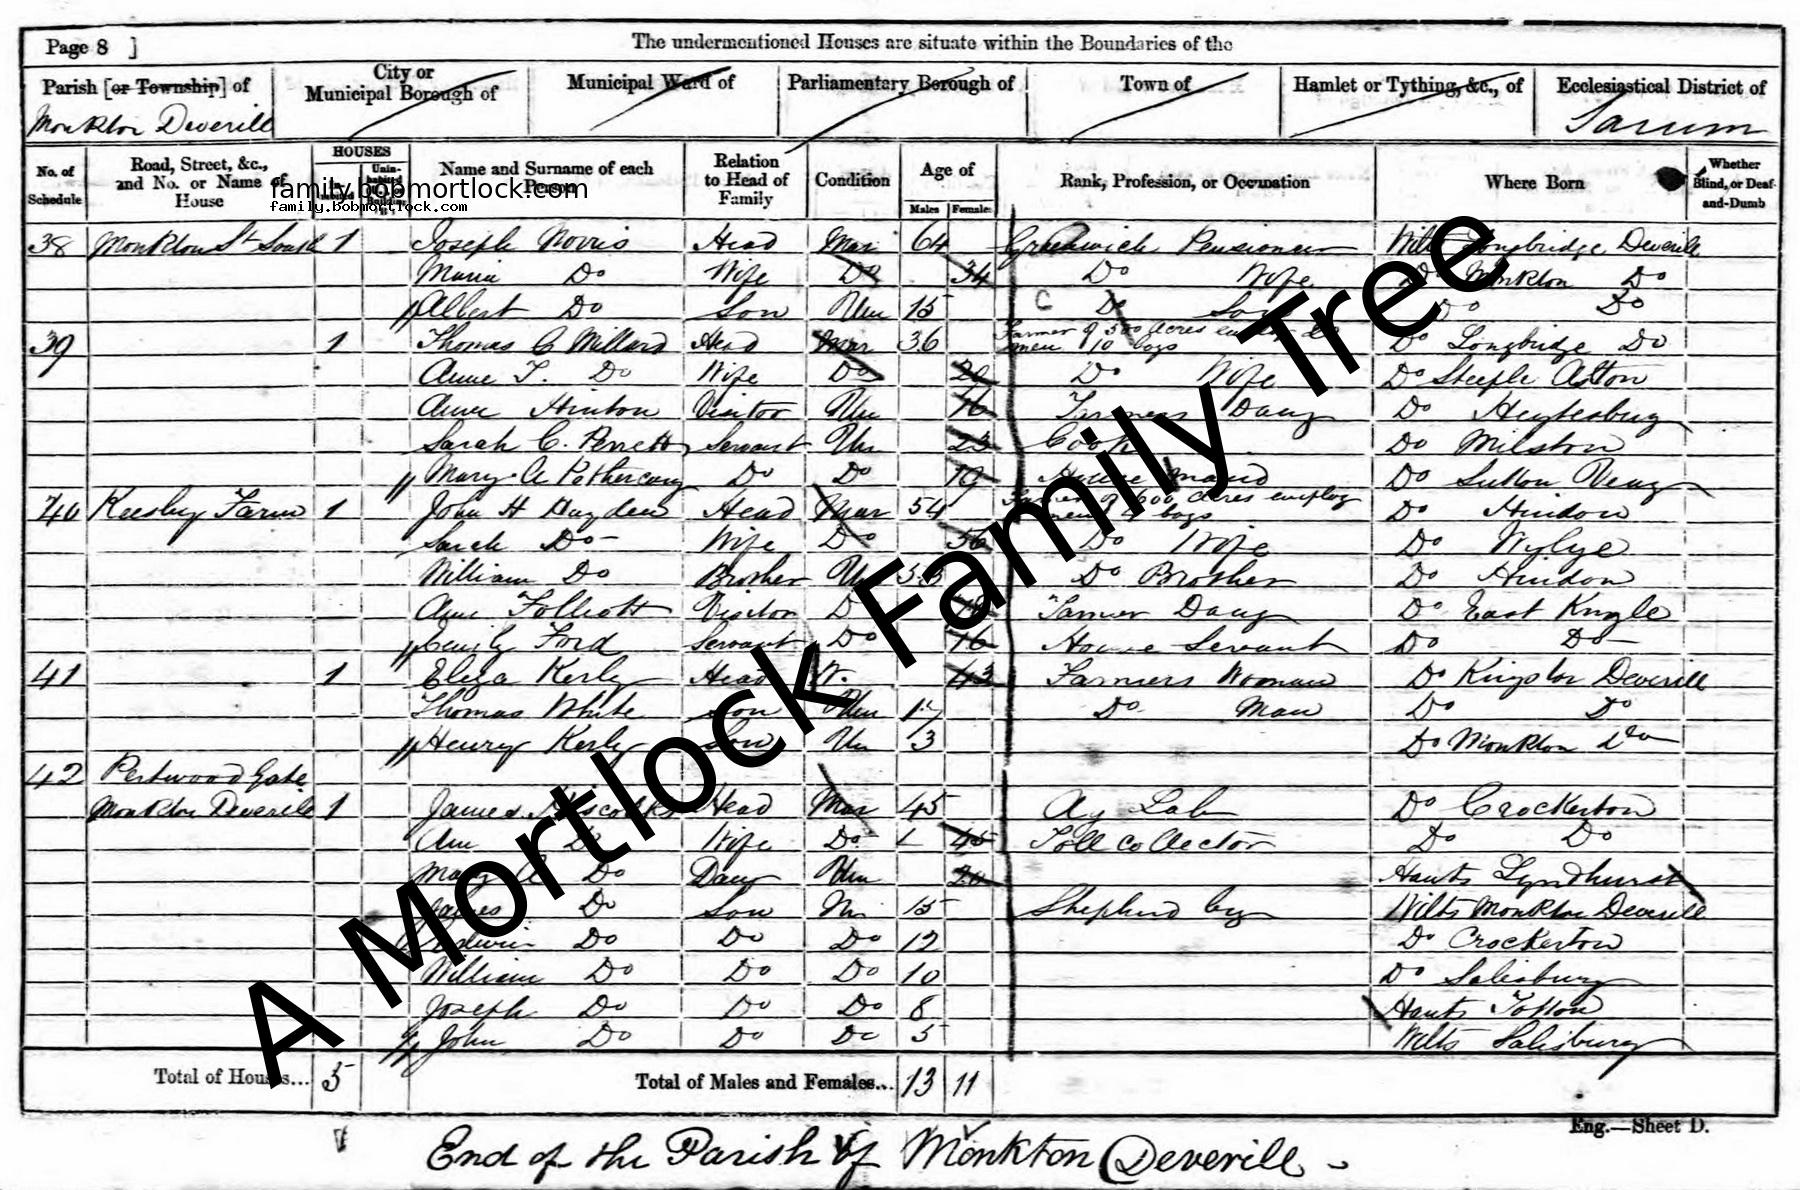 Page 8 ]
The undermentioned Houses are situate within the Boundaries of the
Parish [or Township] of
City or Municipal Borough of
Municipal Ward of
Parliamentary Borough of
Town of
Hamlet or Tything, &c., of
Ecclesiastical District of
Monkton Deverill
Sarum
No. of Schedule
Road, Street, &c., and No. or Name of House
HOUSES
Name and Surname of each Person
Relation to Head of Family
Condition
Age of
Males
Females
Rank, Profession, or Occupation
Where Born
Whether Blind, or Deaf-and-Dumb
family.bobmortlock.com
family.bobmortlock.com
38 Monkton St South 1 Joseph Norris Head Mar 64 Greenwich Pensioner Wilts Longbridge Deverill
Maria Do Wife Do 34 Do Wife Do Monkton Do
Albert Do Son Un 15 Do Son Do Do
39 1 Thomas C Millard Head Mar 36 Farmer of 500 acres men 10 boys Do Longbridge Do
Anne T. Do Wife Do Do Wife Do Steeple Aston
Anne Hinton Visitor Un 16 Farmers Daug Do Heytesbury
Sarah C. Perrett Servant Un 23 Cook Do Milston
Mary A Pothercary Do Do 19 House maid Do Sutton Veny
40 Keesley Farm 1 John H Hayden Head Mar 54 Farmer of 600 acres employ men boys Do Hindon
Sarah Do Wife Do 56 Do Wife Do Wylye
William Do Brother Un Do Brother Do Hindon
Ann Folliott Visitor D Farmer Daug Do East Knoyle
Emily Ford Servant Do 16 House Servant Do Do
41 1 Eliza Kerly Head W. 43 Farmers Woman Do Kingston Deverill
Thomas White Son Un 17 Do Man Do Do
Henry Kerly Son Un 3 Do Monkton Do
42 Pertwood Gate
Monkton Deverill 1 James Head Mar 45 Ag Lab Do Crockerton
Ann Do Wife Do 45 Toll collector Do Do
Mary A Do Daug Un 20 Hants Lyndhurst
James Do Son Un 15 Shepherd boy Wilts Monkton Deverill
Edwin Do Do Do 12 Do Crockerton
William Do Do Do 10 Do Salisbury
Joseph Do Do Do 8 Hants Totton
John Do Do Do 5 Wilts Salisbury
Total of Houses... 5 Total of Males and Females... 13 11
Eng.—Sheet D.
End of the Parish of Monkton Deverill
A Mortlock Family Tree